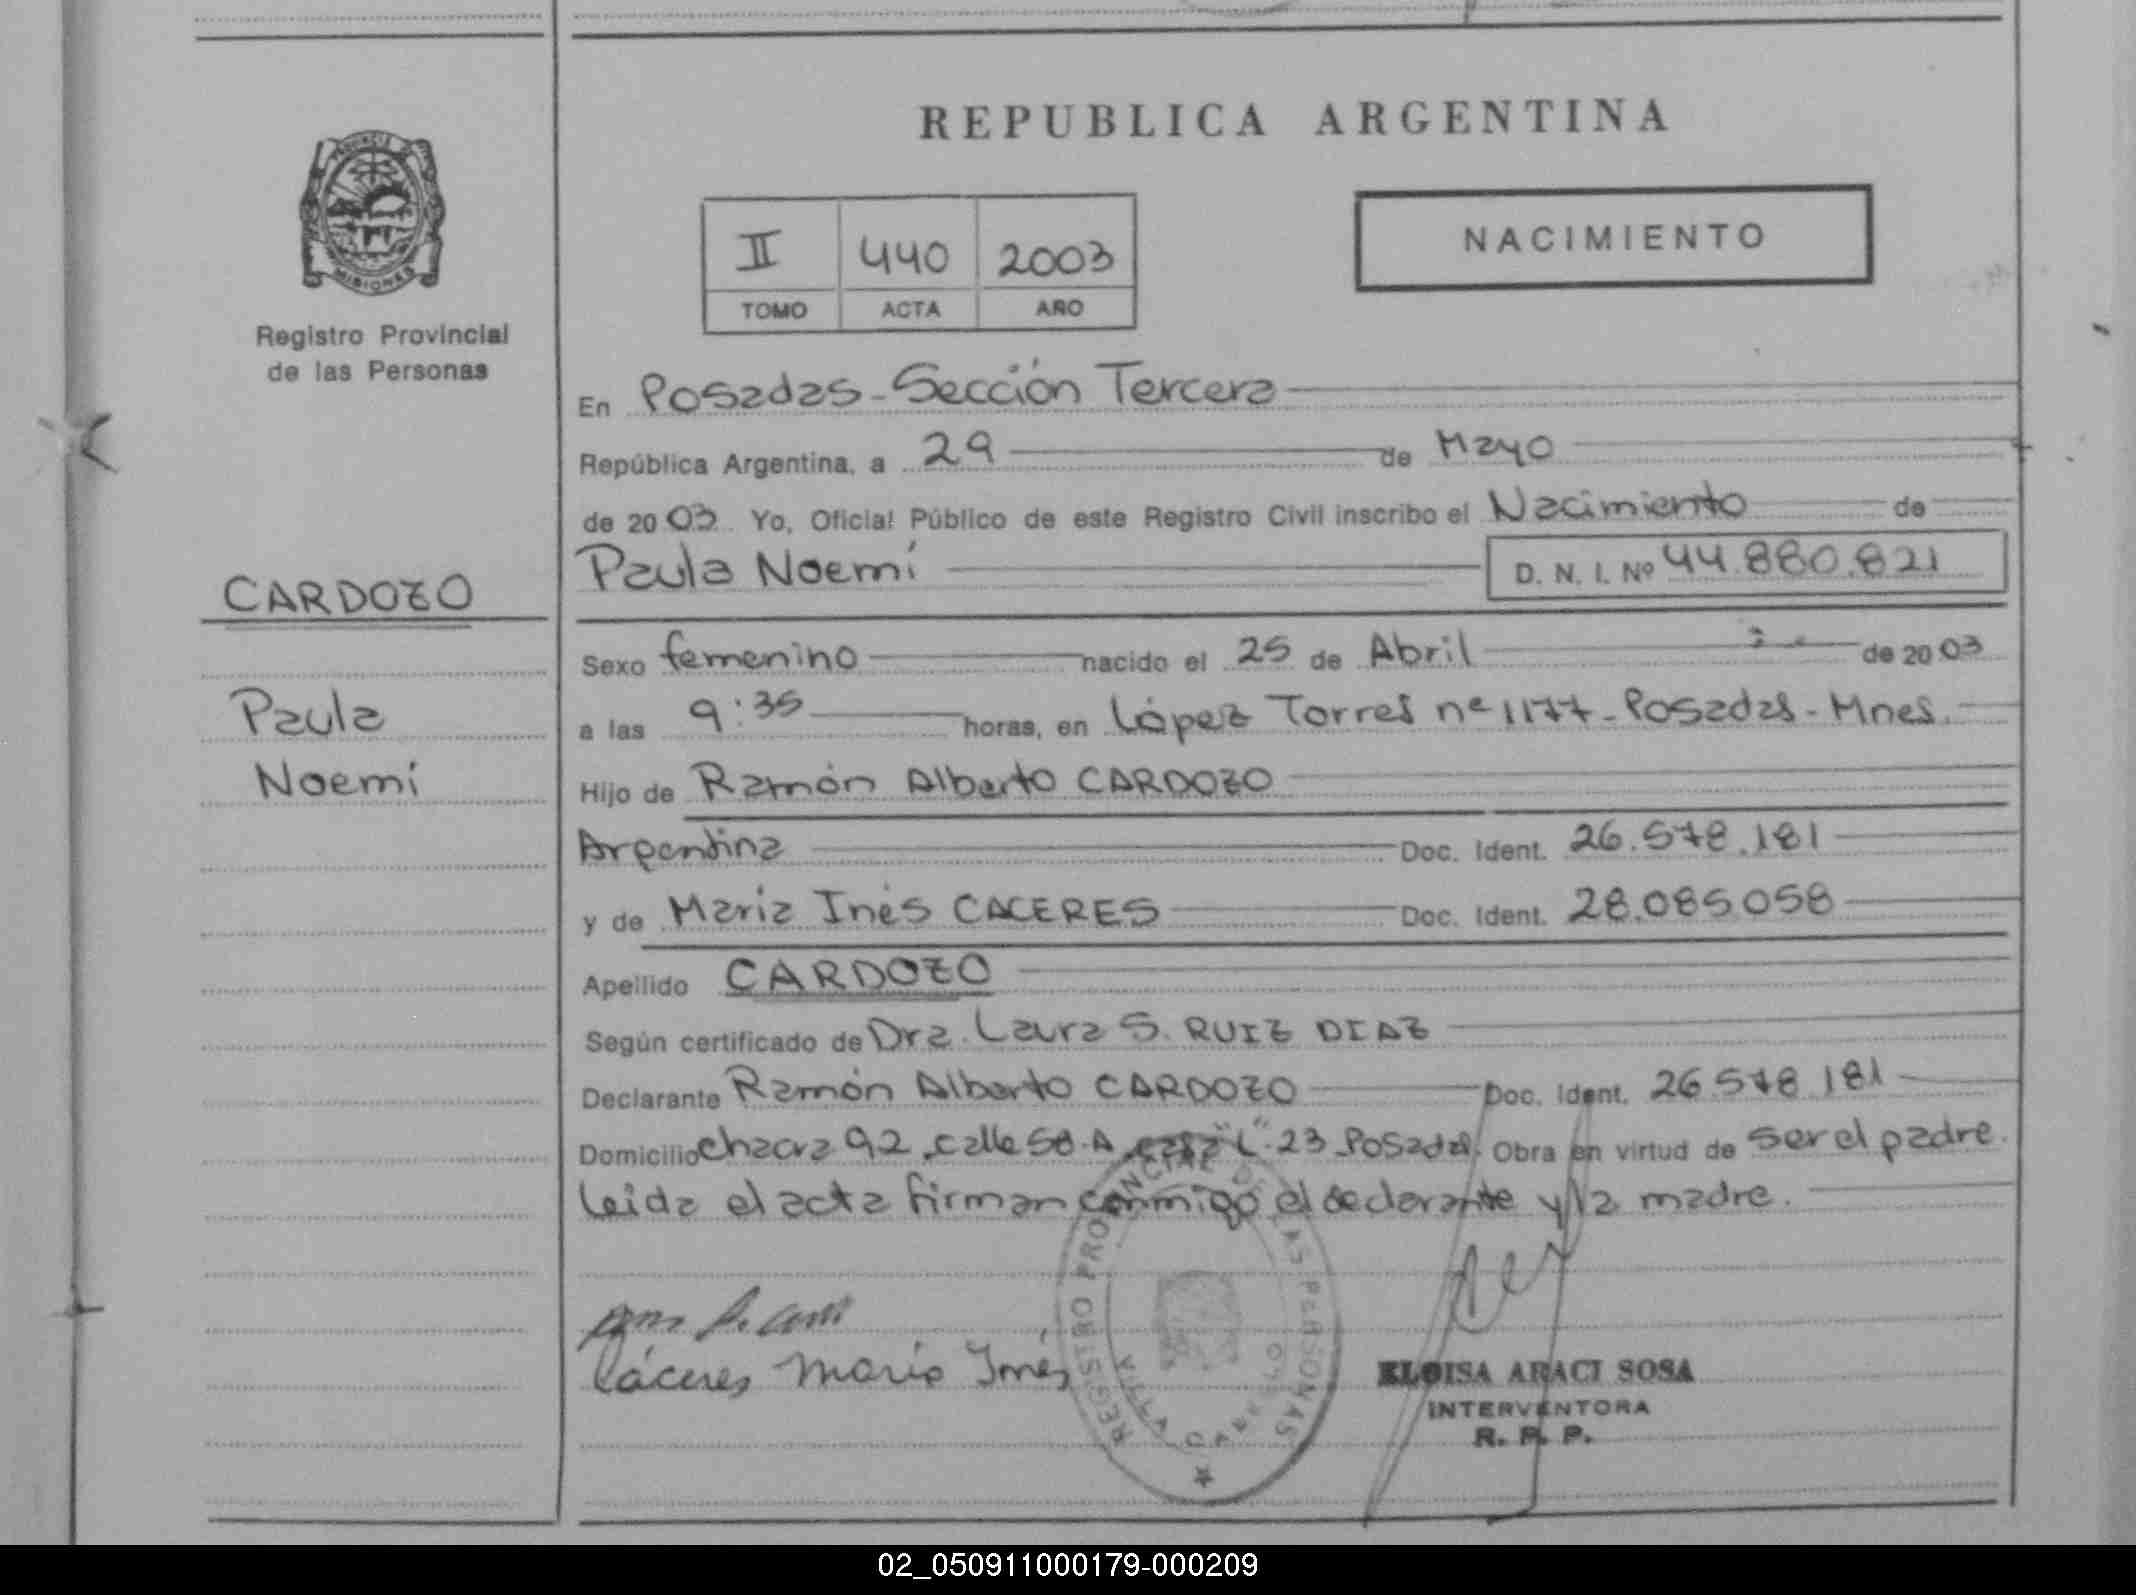 REPUBLICA ARGENTINA
PROVINCIA DE
MISIONES
Registro Provincial
de las Personas
II 440 2003
TOMO ACTA AÑO
NACIMIENTO
En Posadas - Sección Tercera
República Argentina, a 29 de Mayo
de 2003 Yo, Oficial Público de este Registro Civil inscribo el Nacimiento de
Paula Noemí D. N. I. Nº 44.880.821
CARDOZO
Paula
Noemí
Sexo femenino nacido el 25 de Abril de 2003
a las 9:35 horas, en López Torres nº 1177 - Posadas - Mnes.
Hijo de Ramón Alberto CARDOZO
Argentina Doc. Ident. 26.578.181
y de María Inés CACERES Doc. Ident. 28.085.058
Apellido CARDOZO
Según certificado de Dra. Laura S. RUIZ DIAZ
Declarante Ramón Alberto CARDOZO Doc. Ident. 26.578.181
Domicilio Chacra 92, calle 58-A casa "L" 23 Posadas. Obra en virtud de ser el padre.
Leída el acta firman conmigo el declarante y la madre.
Cáceres María Inés
REGISTRO PROVINCIAL DE LAS PERSONAS
VILLA CABELLO
ELOISA ARACI SOSA
INTERVENTORA
R. P. P.
02_050911000179-000209